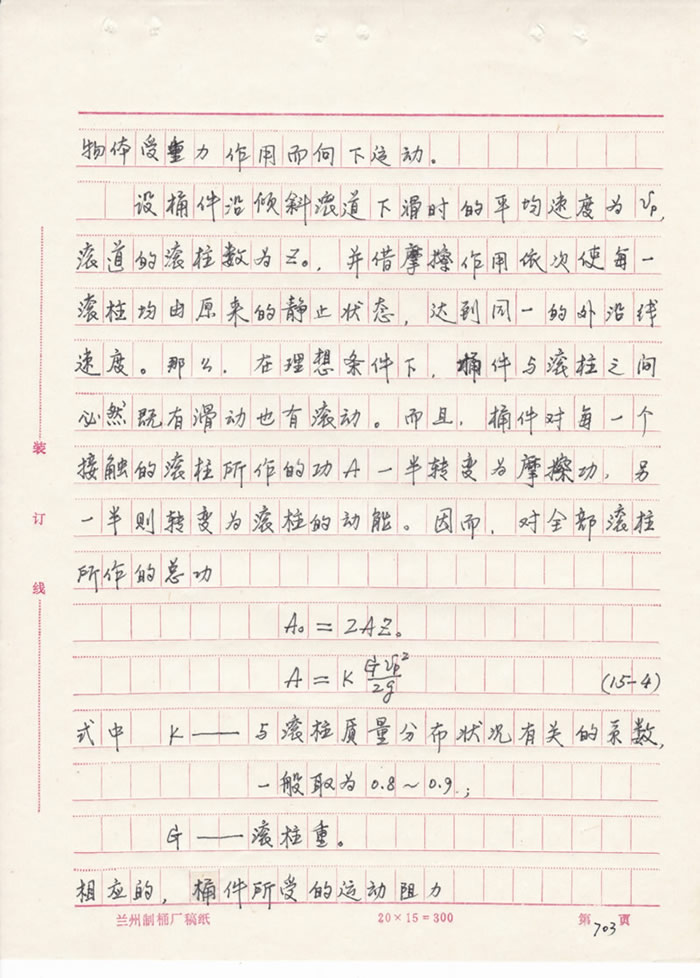 物体受重力作用而向下运动。
设桶件沿倾斜滚道下滑时的平均速度为 Vp,
滚道的滚柱数为Z₀, 并借摩擦作用依次使每一
滚柱均由原来的静止状态, 达到同一的外沿线
速度。那么, 在理想条件下, 桶件与滚柱之间
必然既有滑动也有滚动。而且, 桶件对每一个
接触的滚柱所作的功A一半转变为摩擦功, 另
一半则转变为滚柱的动能。因而, 对全部滚柱
所作的总功
A₀ = 2AZ₀
A = K GVp²/2g (15-4)
式中 K —— 与滚柱质量分布状况有关的系数,
一般取为 0.8~0.9;
G —— 滚柱重。
相应的, 桶件所受的运动阻力
装
订
线
兰州制桶厂稿纸 20×15=300 第 703 页